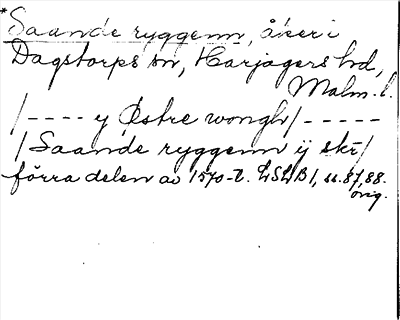 *Saande ryggenn, åker i
Dagstorps sn, Harjagers hd,
Malm. l.
/---- y Østre wongh/-----
/Saande ryggenn ij skr/
förra delen av 1570-t. LSLB 1, ss. 87, 88.
orig.